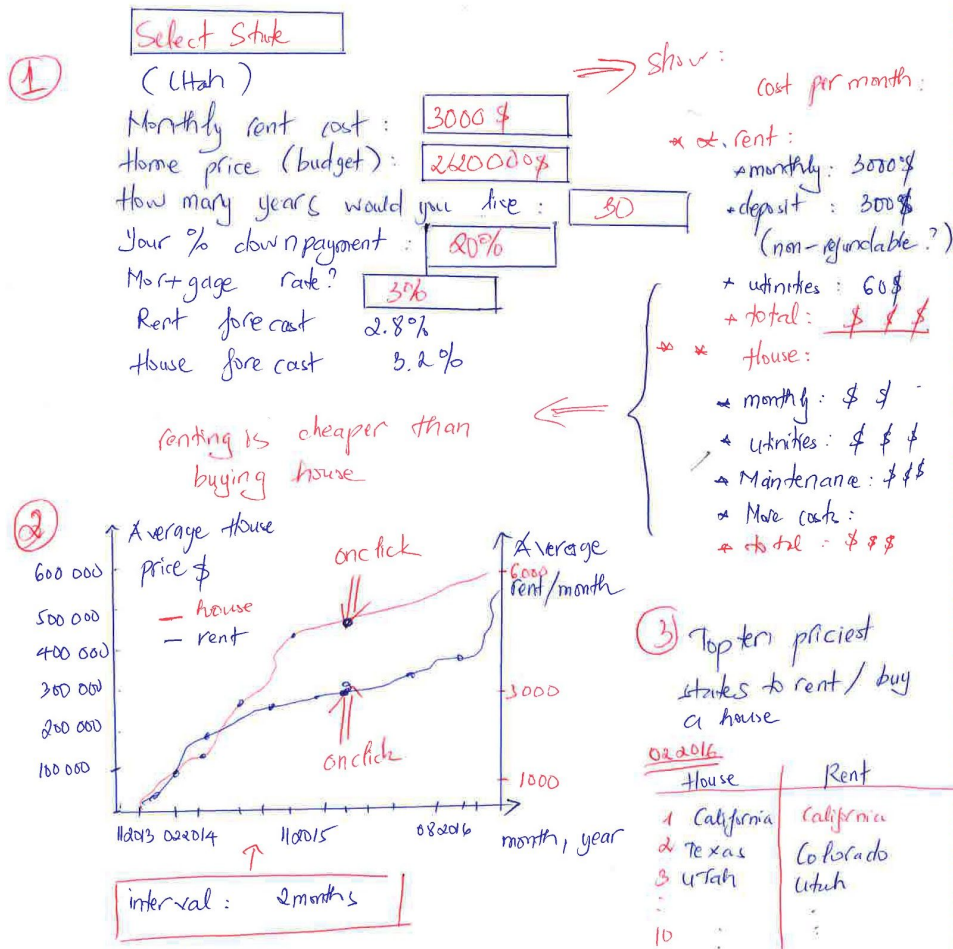 1
Select State
(Utah)
Monthly rent cost : 3000 $
Home price (budget) : 2620000$
How many years would you live : 30
Your % downpayment : 20%
Mortgage rate? 3%
Rent forecast 2.8%
House forecast 3.2%
show :
cost per month :
rent :
monthly : 3000$
deposit : 300$
(non-refundable?)
utinities : 60$
total : $ $ $
* * House :
monthly : $ $
utinities : $ $ $
Maintenane : $$$
More costs :
total : $ $ $
renting is cheaper than
buying house
2
Average House
price $
house
rent
600 000
500 000
400 000
300 000
200 000
100 000
onclick
onclick
Average
rent/month
6000
3000
1000
112013 022014 112015 082016
month, year
interval : 2months
3 Top ten priciest
states to rent / buy
a house
022016
House Rent
1 California California
2 Texas Colorado
3 Utah Utah
:
10